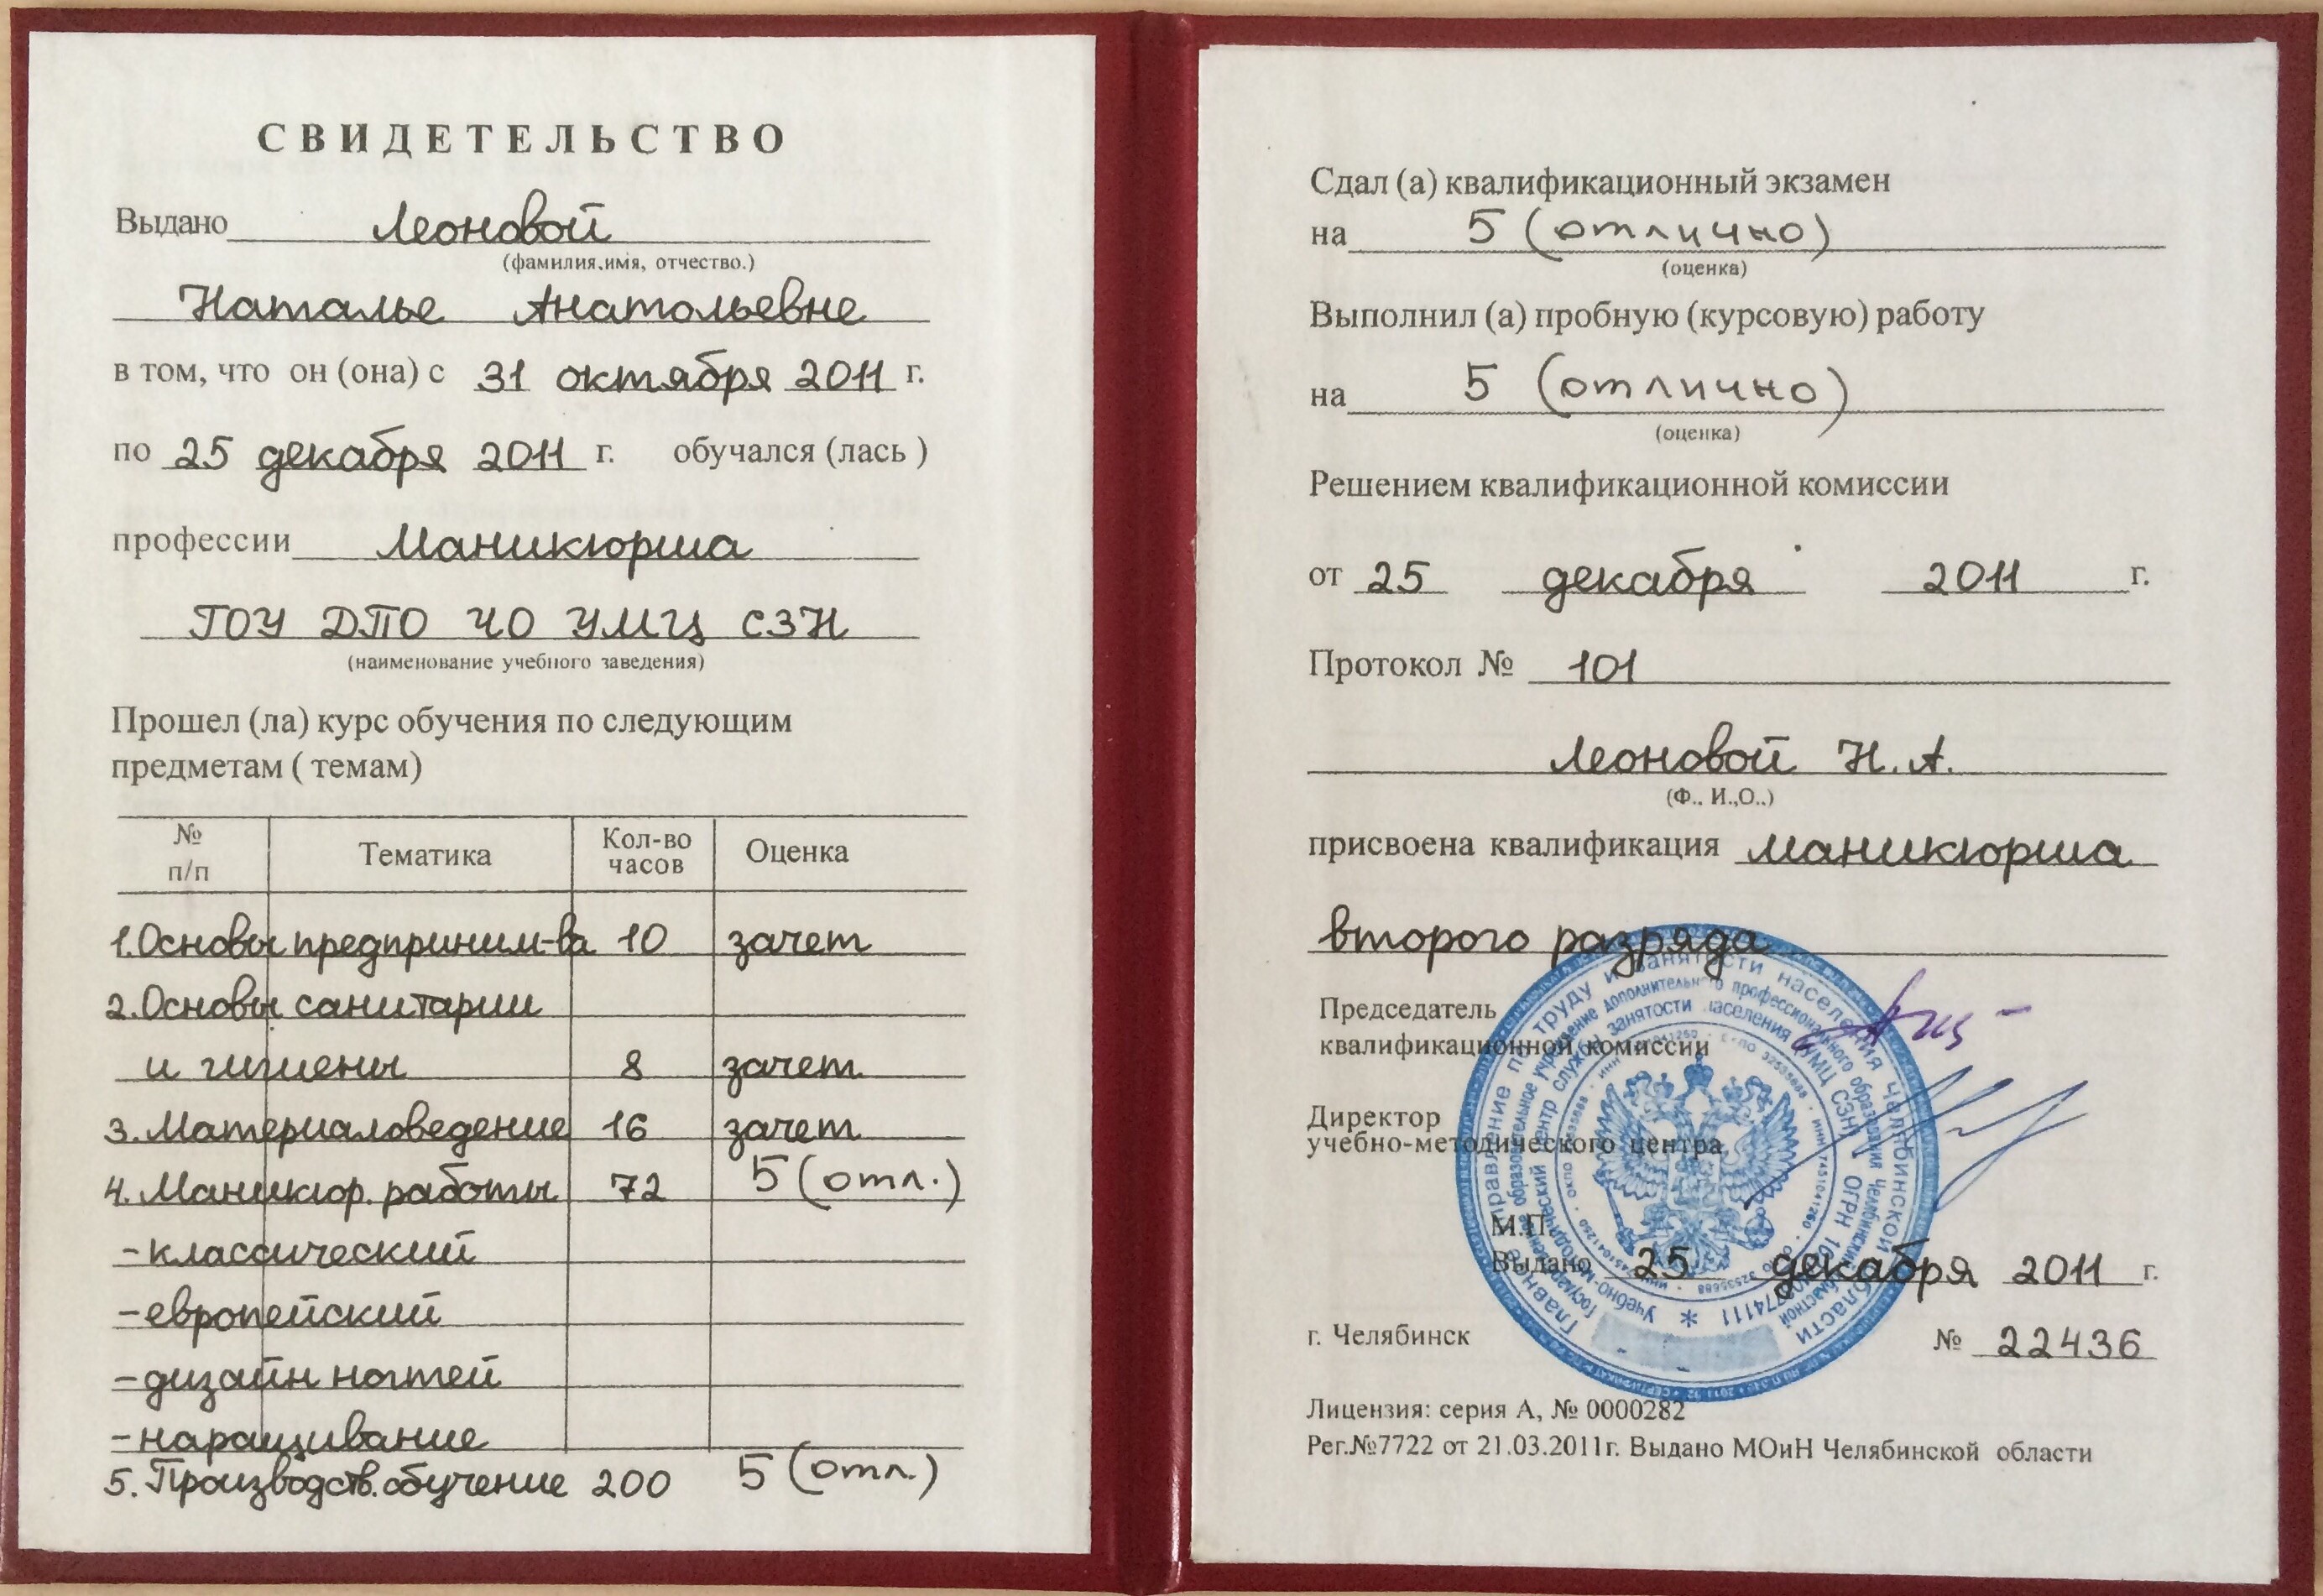 СВИДЕТЕЛЬСТВО
Выдано Леоновой
(фамилия,имя, отчество.)
Наталье Анатольевне
в том, что он (она) с 31 октября 2011 г.
по 25 декабря 2011 г. обучался (лась )
профессии Маникюрша
ГОУ ДПО ЧО УМЦ СЗН
(наименование учебного заведения)
Прошел (ла) курс обучения по следующим
предметам ( темам)
№ п/п Тематика Кол-во часов Оценка
1.Основы предприним-ва 10 зачет
2.Основы санитарии
и гигиены 8 зачет
3.Материаловедение 16 зачет
4.Маникюр. работы 72 5 (отл.)
-классический
-европейский
-дизайн ногтей
-наращивание
5.Производств.обучение 200 5 (отл.)
Сдал (а) квалификационный экзамен
на 5 (отлично)
(оценка)
Выполнил (а) пробную (курсовую) работу
на 5 (отлично)
(оценка)
Решением квалификационной комиссии
от 25 декабря 2011 г.
Протокол № 101
Леоновой Н.А.
(Ф.. И.,О..)
присвоена квалификация маникюрша
второго разряда
Председатель
квалификационной комиссии
Директор
учебно-методического центра
М.П.
Выдано 25 декабря 2011 г.
г. Челябинск № 22436
Лицензия: серия А, № 0000282
Рег.№7722 от 21.03.2011г. Выдано МОиН Челябинской области
Главное управление по труду и занятости населения Челябинской области